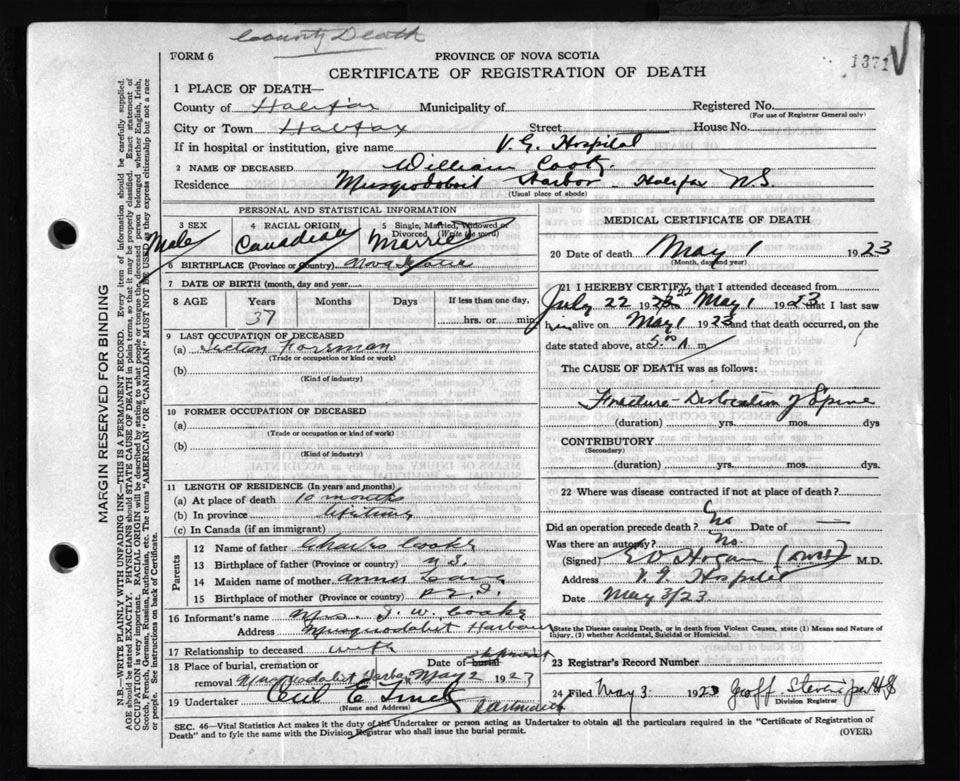 County Death
1371 V
FORM 6
PROVINCE OF NOVA SCOTIA
CERTIFICATE OF REGISTRATION OF DEATH
1 PLACE OF DEATH—
County of Halifax Municipality of Registered No.
(For use of Registrar General only)
City or Town Halifax Street House No.
If in hospital or institution, give name V. G. Hospital
2 NAME OF DECEASED William Cook
Residence Musquodoboit Harbor Halifax N.S.
(Usual place of abode)
PERSONAL AND STATISTICAL INFORMATION
3 SEX 4 RACIAL ORIGIN 5 Single, Married, Widowed or Divorced (Write the word)
Male Canadian Married
6 BIRTHPLACE (Province or Country) Nova Scotia
7 DATE OF BIRTH (month, day and year)
8 AGE Years Months Days If less than one day,
37 hrs. or min.
9 LAST OCCUPATION OF DECEASED
(a) Section Foreman
(Trade or occupation or kind or work)
(b)
(Kind of industry)
10 FORMER OCCUPATION OF DECEASED
(a)
(Trade or occupation or kind of work)
(b)
(Kind of industry)
11 LENGTH OF RESIDENCE (In years and months)
(a) At place of death 10 months
(b) In province lifetime
(c) In Canada (if an immigrant)
Parents
12 Name of father Charles Cooke
13 Birthplace of father (Province or country) N.S.
14 Maiden name of mother
15 Birthplace of mother (Province or country) P.E.I.
16 Informant's name Mrs. J. W. Cooke
Address Musquodobit Harbour
17 Relationship to deceased wife
18 Place of burial, cremation or Date of burial shipment
removal Musquodobit Harbor May 2 1923
19 Undertaker Cecil E
(Name and Address) Dartmouth
MEDICAL CERTIFICATE OF DEATH
20 Date of death May 1 1923
(Month, day and year)
21 I HEREBY CERTIFY, that I attended deceased from
July 22 1922 May 1 1923 that I last saw
him alive on May 1 1923 and that death occurred, on the
date stated above, at 5.00 A. m.
The CAUSE OF DEATH was as follows:
Fracture-Dislocation of Spine
(duration) yrs. mos. dys
CONTRIBUTORY
(Secondary)
(duration) yrs. mos. dys.
22 Where was disease contracted if not at place of death?
Did an operation precede death? No Date of —
Was there an autopsy? No
(Signed) E V Hogan M.D.
Address V. G. Hospital
Date May 3/23.
State the Disease causing Death, or in death from Violent Causes, state (1) Means and Nature of
Injury, (2) whether Accidental, Suicidal or Homicidal.
23 Registrar's Record Number
24 Filed May 3 1923 Geoff
Division Registrar
SEC. 46—Vital Statistics Act makes it the duty of the Undertaker or person acting as Undertaker to obtain all the particulars required in the "Certificate of Registration of
Death" and to fyle the same with the Division Registrar who shall issue the burial permit. (OVER)
MARGIN RESERVED FOR BINDING
N.B.—WRITE PLAINLY WITH UNFADING INK—THIS IS A PERMANENT RECORD. Every item of information should be carefully supplied.
AGE should be stated EXACTLY. PHYSICIANS should STATE CAUSE OF DEATH in plain terms, so that it may be properly classified. Exact statement of
OCCUPATION is very important. RACIAL ORIGIN will be described by stating to what people or tongue the deceased person belonged whether English, Irish,
Scotch, French, German, Russian, Ruthenian, etc. The terms "AMERICAN" OR "CANADIAN" MUST NOT BE USED as they express citizenship but not a race
or people. See instructions on back of Certificate.